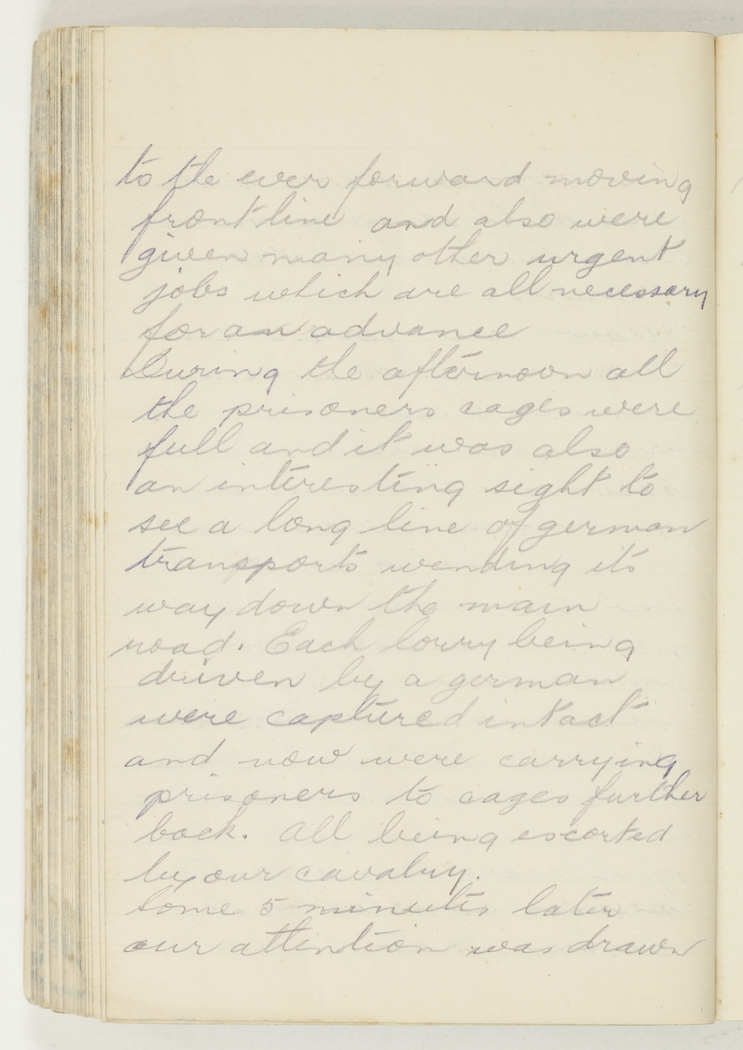 to the ever forward moving
front line and also were
given many other urgent
jobs which are all necessary
for an advance
During the afternoon all
the prisoners cages were
full and it was also
an interesting sight to
see a long line of german
transports wending its
way down the main
road. Each lorry being
driven by a german
were captured intact
and now were carrying
prisoners to cages further
back. All being escorted
by our cavalry.
Some 5 minutes later
our attention was drawn